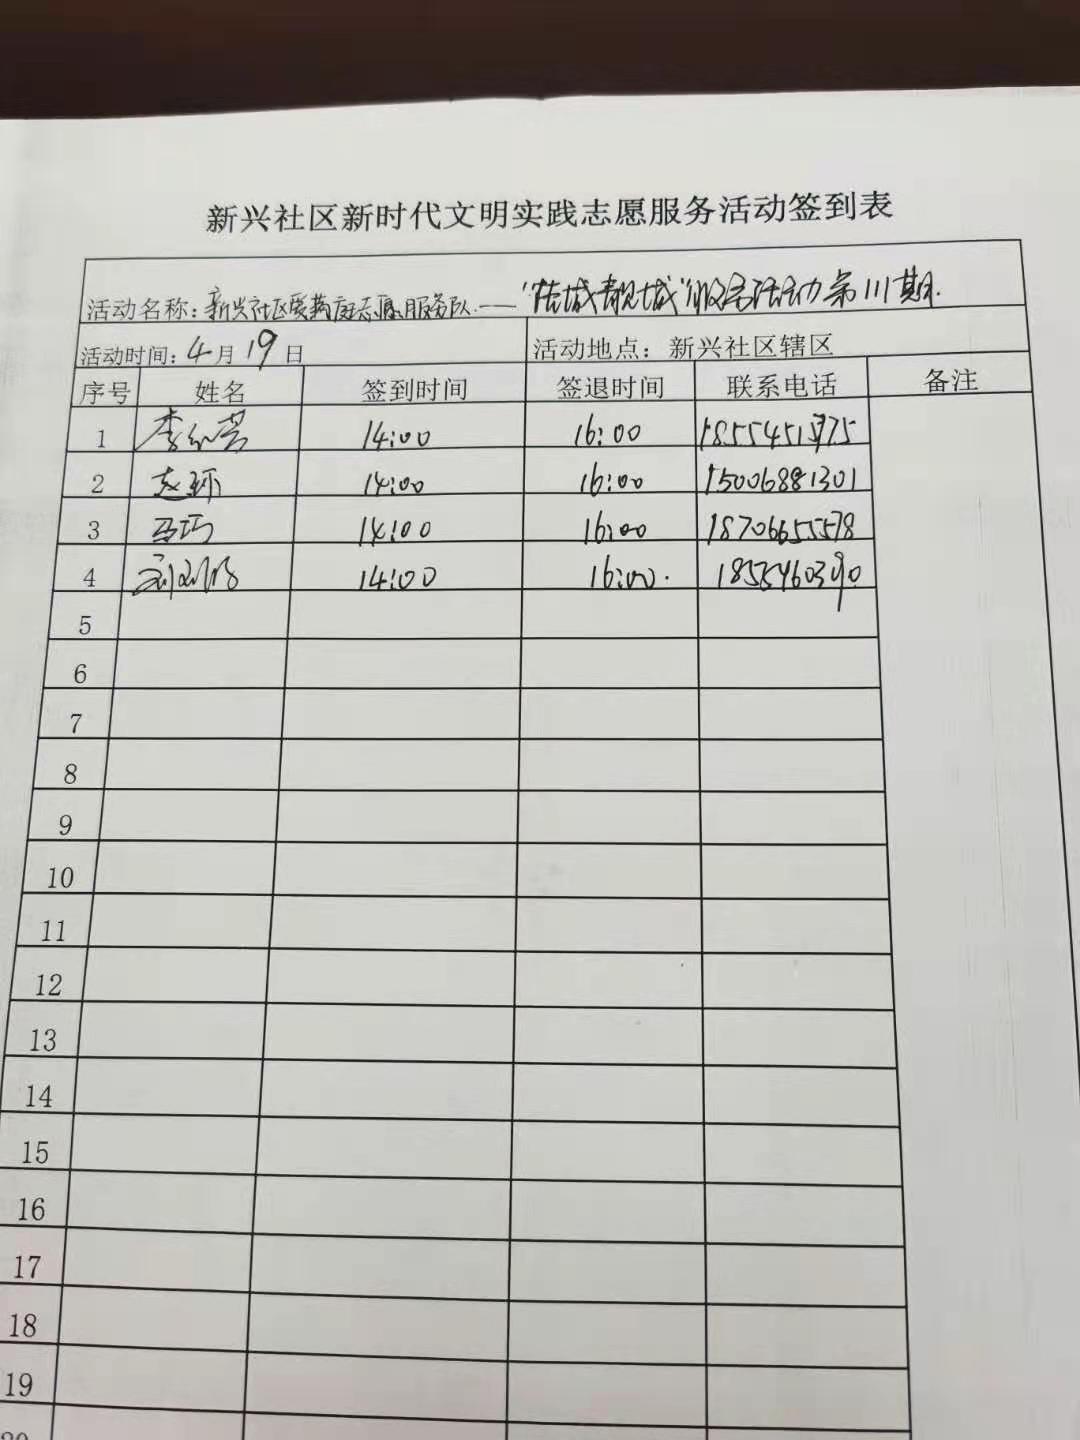 新兴社区新时代文明实践志愿服务活动签到表
活动名称：新兴社区志愿服务队——活动第111期
活动时间：4月19日 活动地点：新兴社区辖区
序号 姓名 签到时间 签退时间 联系电话 备注
1 李 14:00 16:00
2 赵环 14:00 16:00 15006881301
3 马巧 14:00 16:00 18706655578
4 14:00 16:00.
5
6
7
8
9
10
11
12
13
14
15
16
17
18
19
20